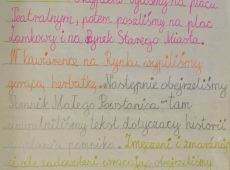 Teatralnym, potem poszliśmy na plac
Zamkowy i na Rynek Starego Miasta.
W kawiarence na Rynku wypiliśmy
gorącą herbatkę. Następnie obejrzeliśmy
Pomnik Małego Powstańca - tam
tekst dotyczący historii
pomnika. Zmęczeni i zmarznięci
obejrzeliśmy